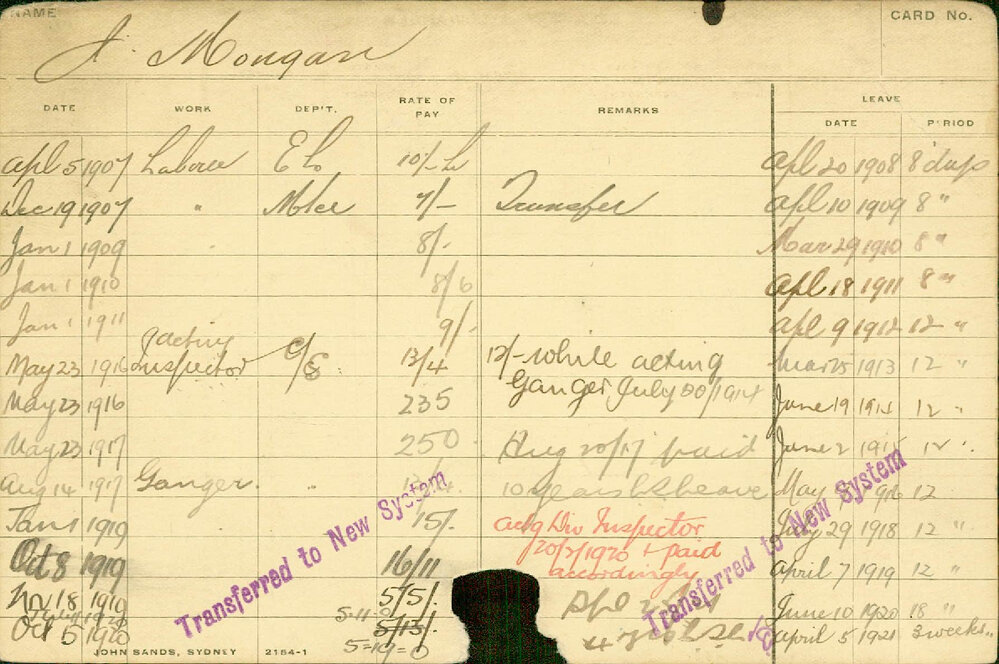 NAME CARD No.
J. Mongan
DATE WORK DEP'T. RATE OF PAY REMARKS LEAVE
DATE PERIOD
Apl 5 1907 Labourer 10/- Apl 20 1908 8 days
Dec 19 1907 " 7/- Transfer Apl 10 1909 8 "
Jan 1 1909 " 8/- Mar 29 1910 8 "
Jan 1 1910 8/6 Apl 18 1911 8 "
Jan 1 1911 9/- Apl 9 1912 12 "
acting
May 23 1916 Inspector 13/4 12/- while acting Mar 25 1913 12 "
Ganger July 1914
May 23 1916 235 June 19 12 "
May 23 1917 250 Aug 20/17 paid June 2 1915 12 "
Aug 14 1917 Ganger. " 10 years Leave May 1916 12
Jan 1 1919 15/- actg Div Inspector July 29 1918 12 "
20/2/1920 + paid
Oct 8 1919 16/11 accordingly April 7 1919 12 "
Nov 18 1919 5/5/- June 10 1920 18 "
5-11-0
Oct 5 1920 5/13/- April 5 1921 3 weeks "
5=19=0
Transferred to New System
Transferred to New System
JOHN SANDS, SYDNEY 2184-1